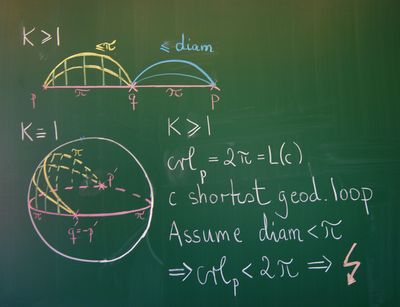 K ≥ 1
≤ π
≤ diam
p π q π p
K ≡ 1
π
p'
π π
q = -p'
K ≥ 1
crl_p = 2π = L(c)
c shortest geod. loop
Assume diam < π
⇒ crl_p < 2π ⇒